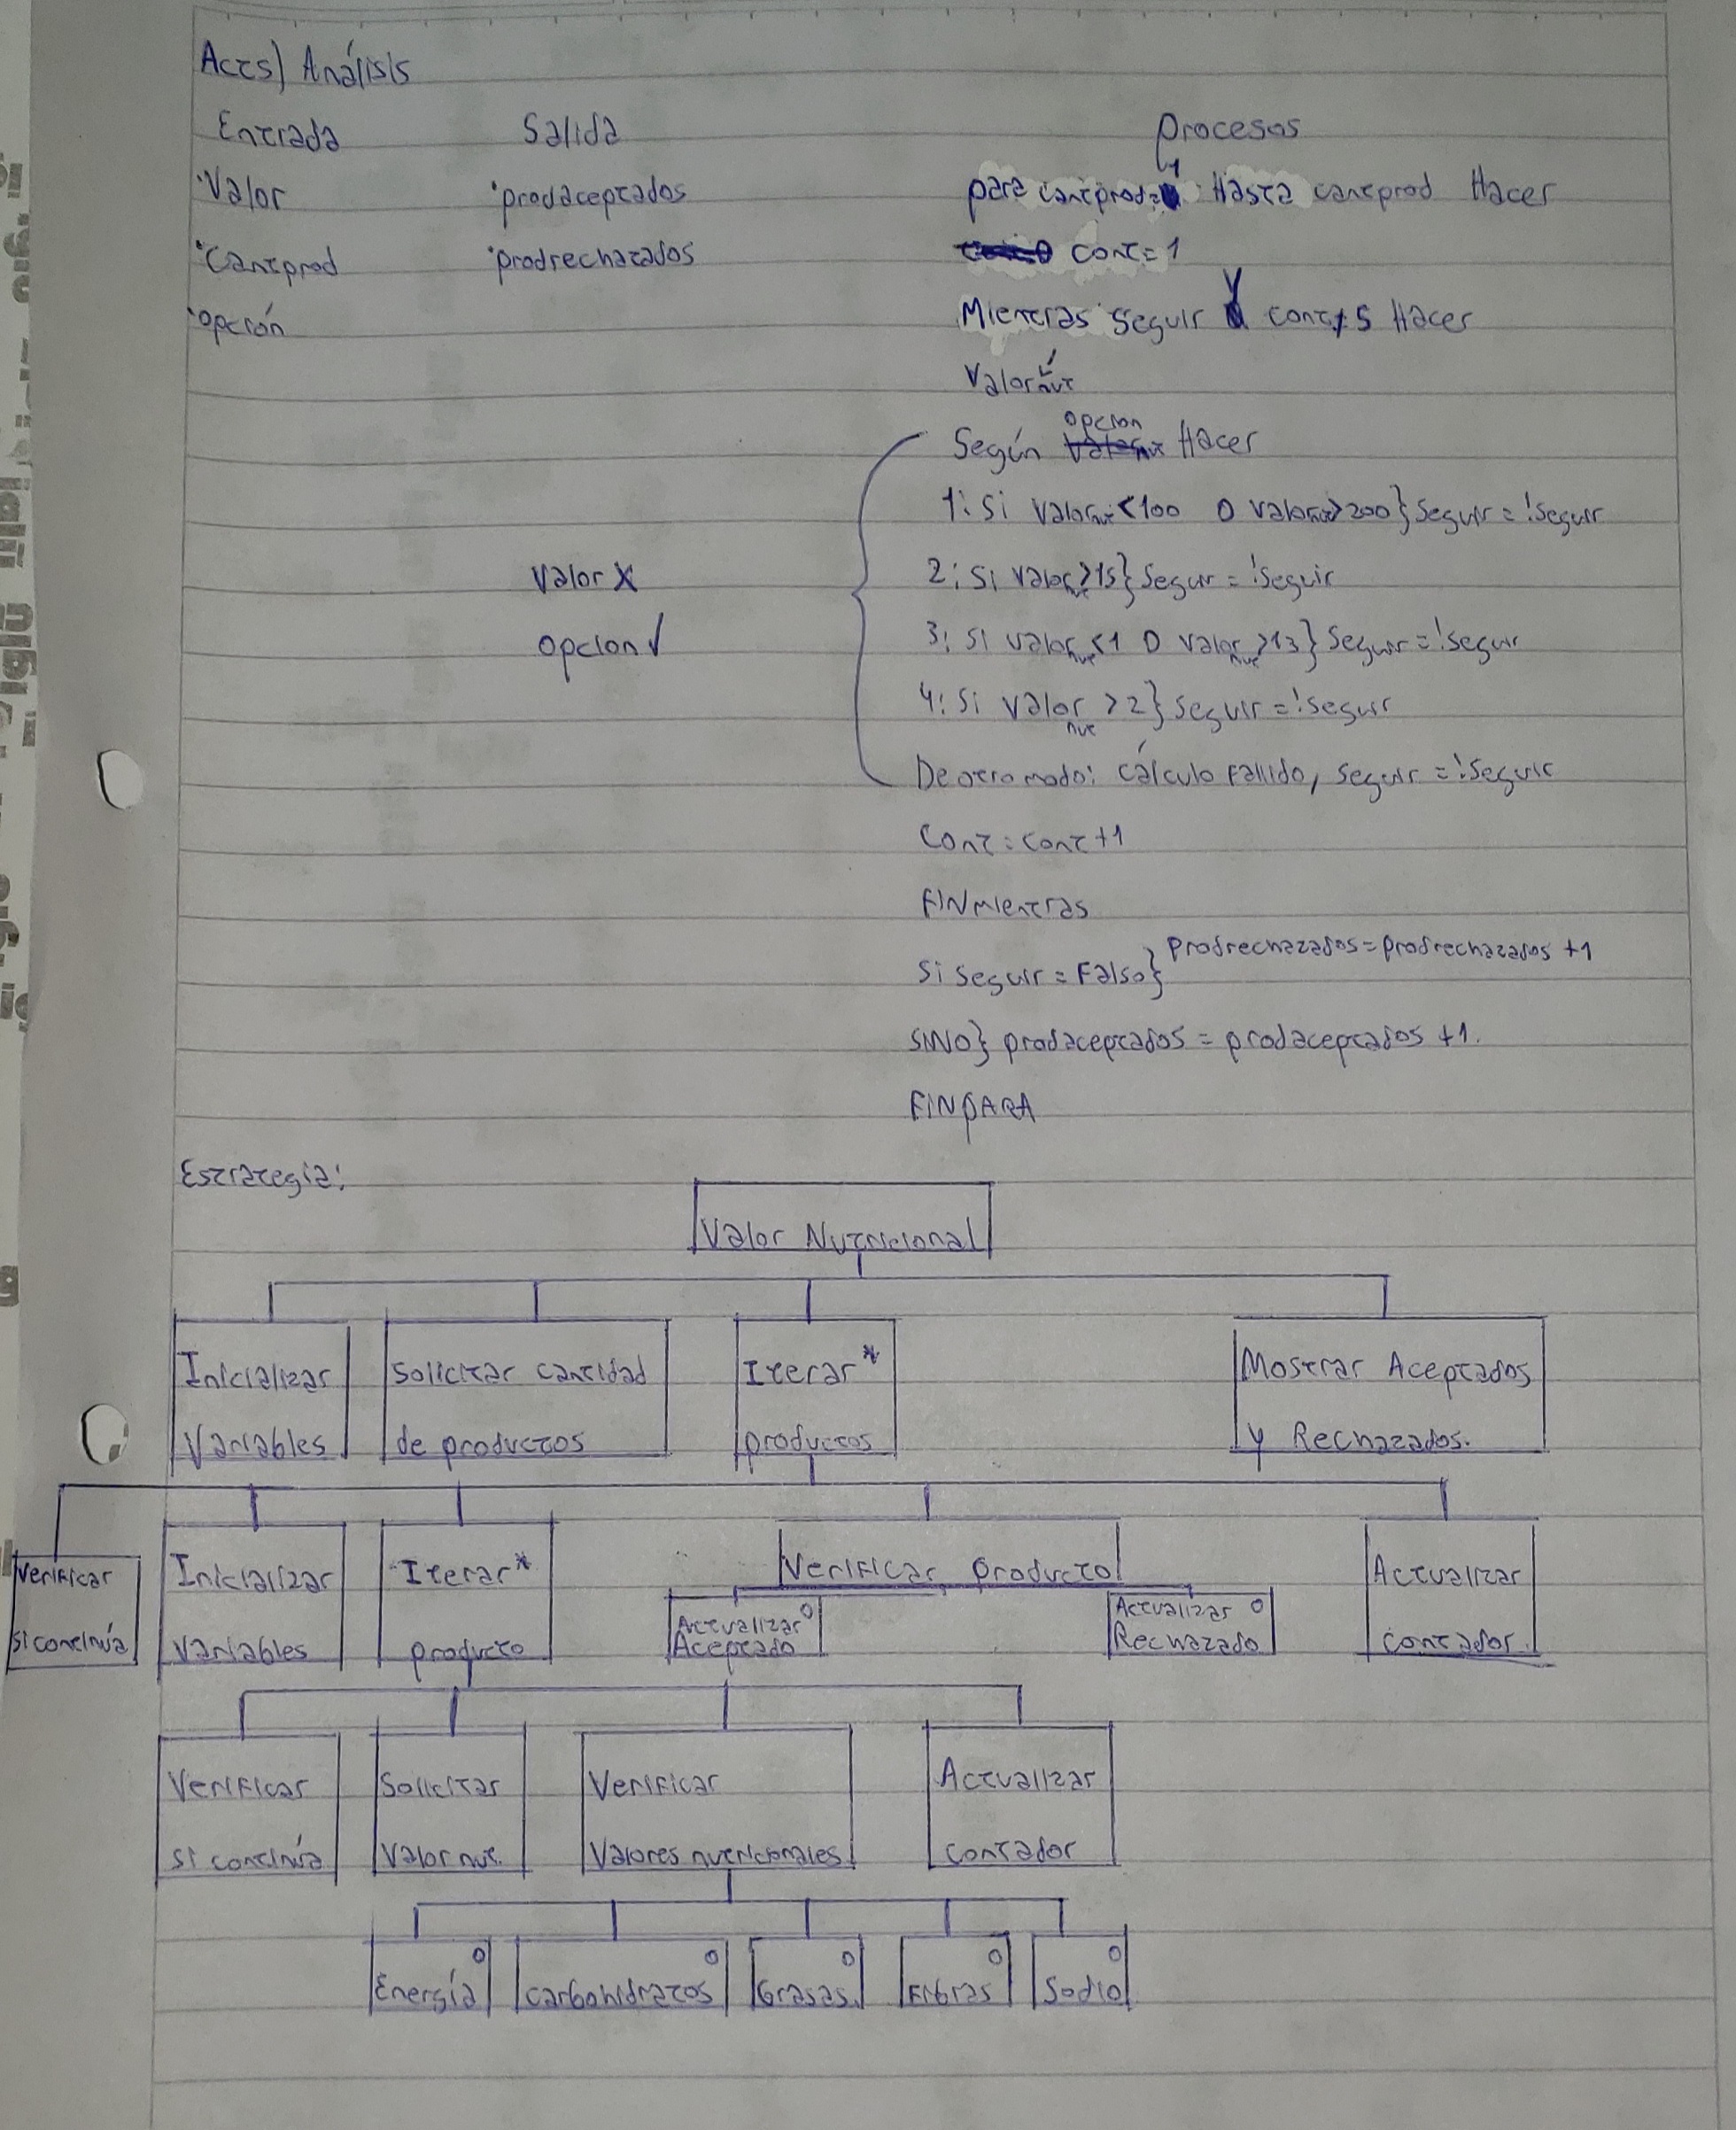 Act5) Análisis
Entrada Salida Procesos
·Valor ·prodaceptados para cantprod=1 Hasta cantprod Hacer
·Cantprod ·prodrechazados cont=1
·opción Mientras seguir Y cont≠5 Hacer
Valornut
opcion
Según Hacer
1: Si Valornut<100 O Valornut>200} Seguir = !Seguir
Valor X 2: Si Valornut>15} Seguir = !Seguir
Opcion ✓ 3: Si Valornut<1 O Valornut>13} Seguir = !seguir
4: Si Valornut >2} Seguir = !seguir
De otro modo: cálculo fallido, seguir = !Seguir
Cont = cont+1
FINmientras
Si seguir = Falso} prodrechazados = prodrechazados +1
SINO} prodaceptados = prodaceptados +1.
FINPARA
Estrategia:
Valor Nutricional
Inicializar Variables
Solicitar cantidad de productos
Iterar* productos
Mostrar Aceptados y Rechazados.
Verificar si continúa
Inicializar Variables
Iterar* producto
Verificar producto
Actualizar O Aceptado
Actualizar O Rechazado
Actualizar contador.
Verificar si continúa
Solicitar Valor nut.
Verificar Valores nutricionales
Actualizar contador
Energía O
Carbohidratos O
Grasas. O
Fibras O
Sodio O